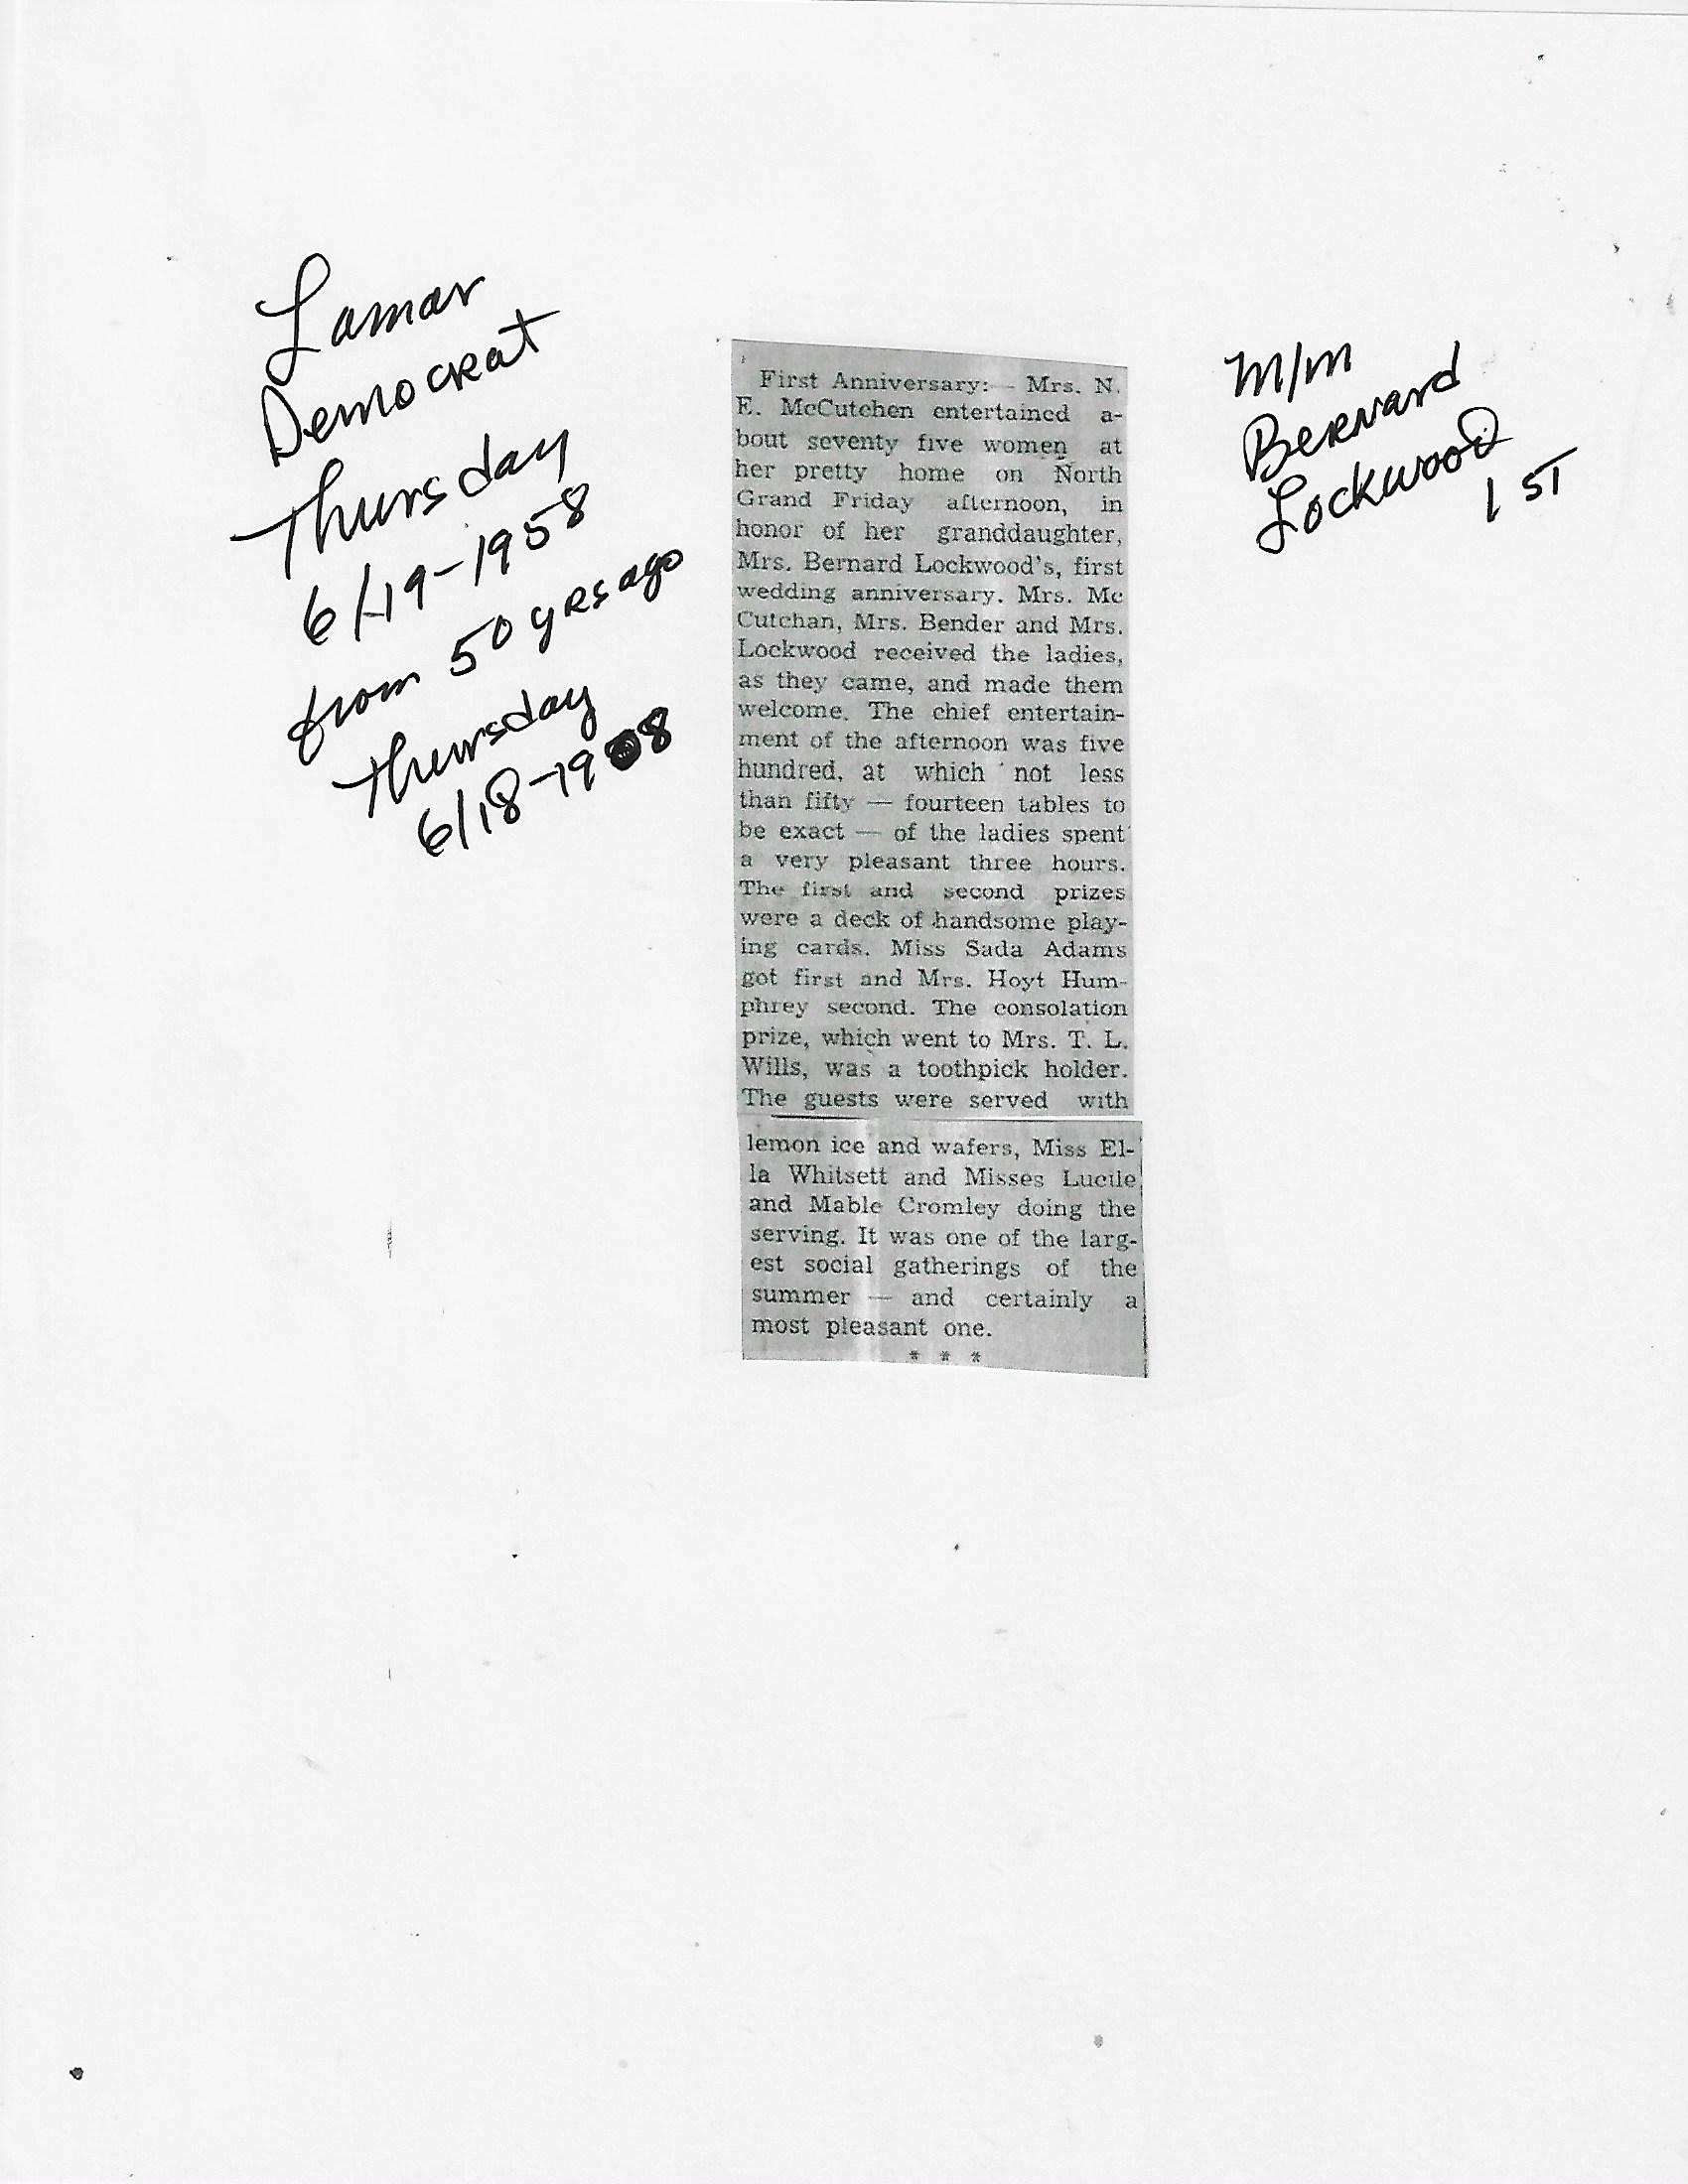 Lamar
Democrat
Thursday
6/19-1958
from 50 yrs ago
Thursday
6/18-1908
First Anniversary: - Mrs. N.
E. McCutchen entertained a-
bout seventy five women at
her pretty home on North
Grand Friday afternoon, in
honor of her granddaughter,
Mrs. Bernard Lockwood's, first
wedding anniversary. Mrs. Mc
Cutchan, Mrs. Bender and Mrs.
Lockwood received the ladies,
as they came, and made them
welcome. The chief entertain-
ment of the afternoon was five
hundred, at which not less
than fifty — fourteen tables to
be exact — of the ladies spent
a very pleasant three hours.
The first and second prizes
were a deck of handsome play-
ing cards. Miss Sada Adams
got first and Mrs. Hoyt Hum-
phrey second. The consolation
prize, which went to Mrs. T. L.
Wills, was a toothpick holder.
The guests were served with
lemon ice and wafers, Miss El-
la Whitsett and Misses Lucile
and Mable Cromley doing the
serving. It was one of the larg-
est social gatherings of the
summer — and certainly a
most pleasant one.
* * *
M/M
Bernard
Lockwood
1 ST